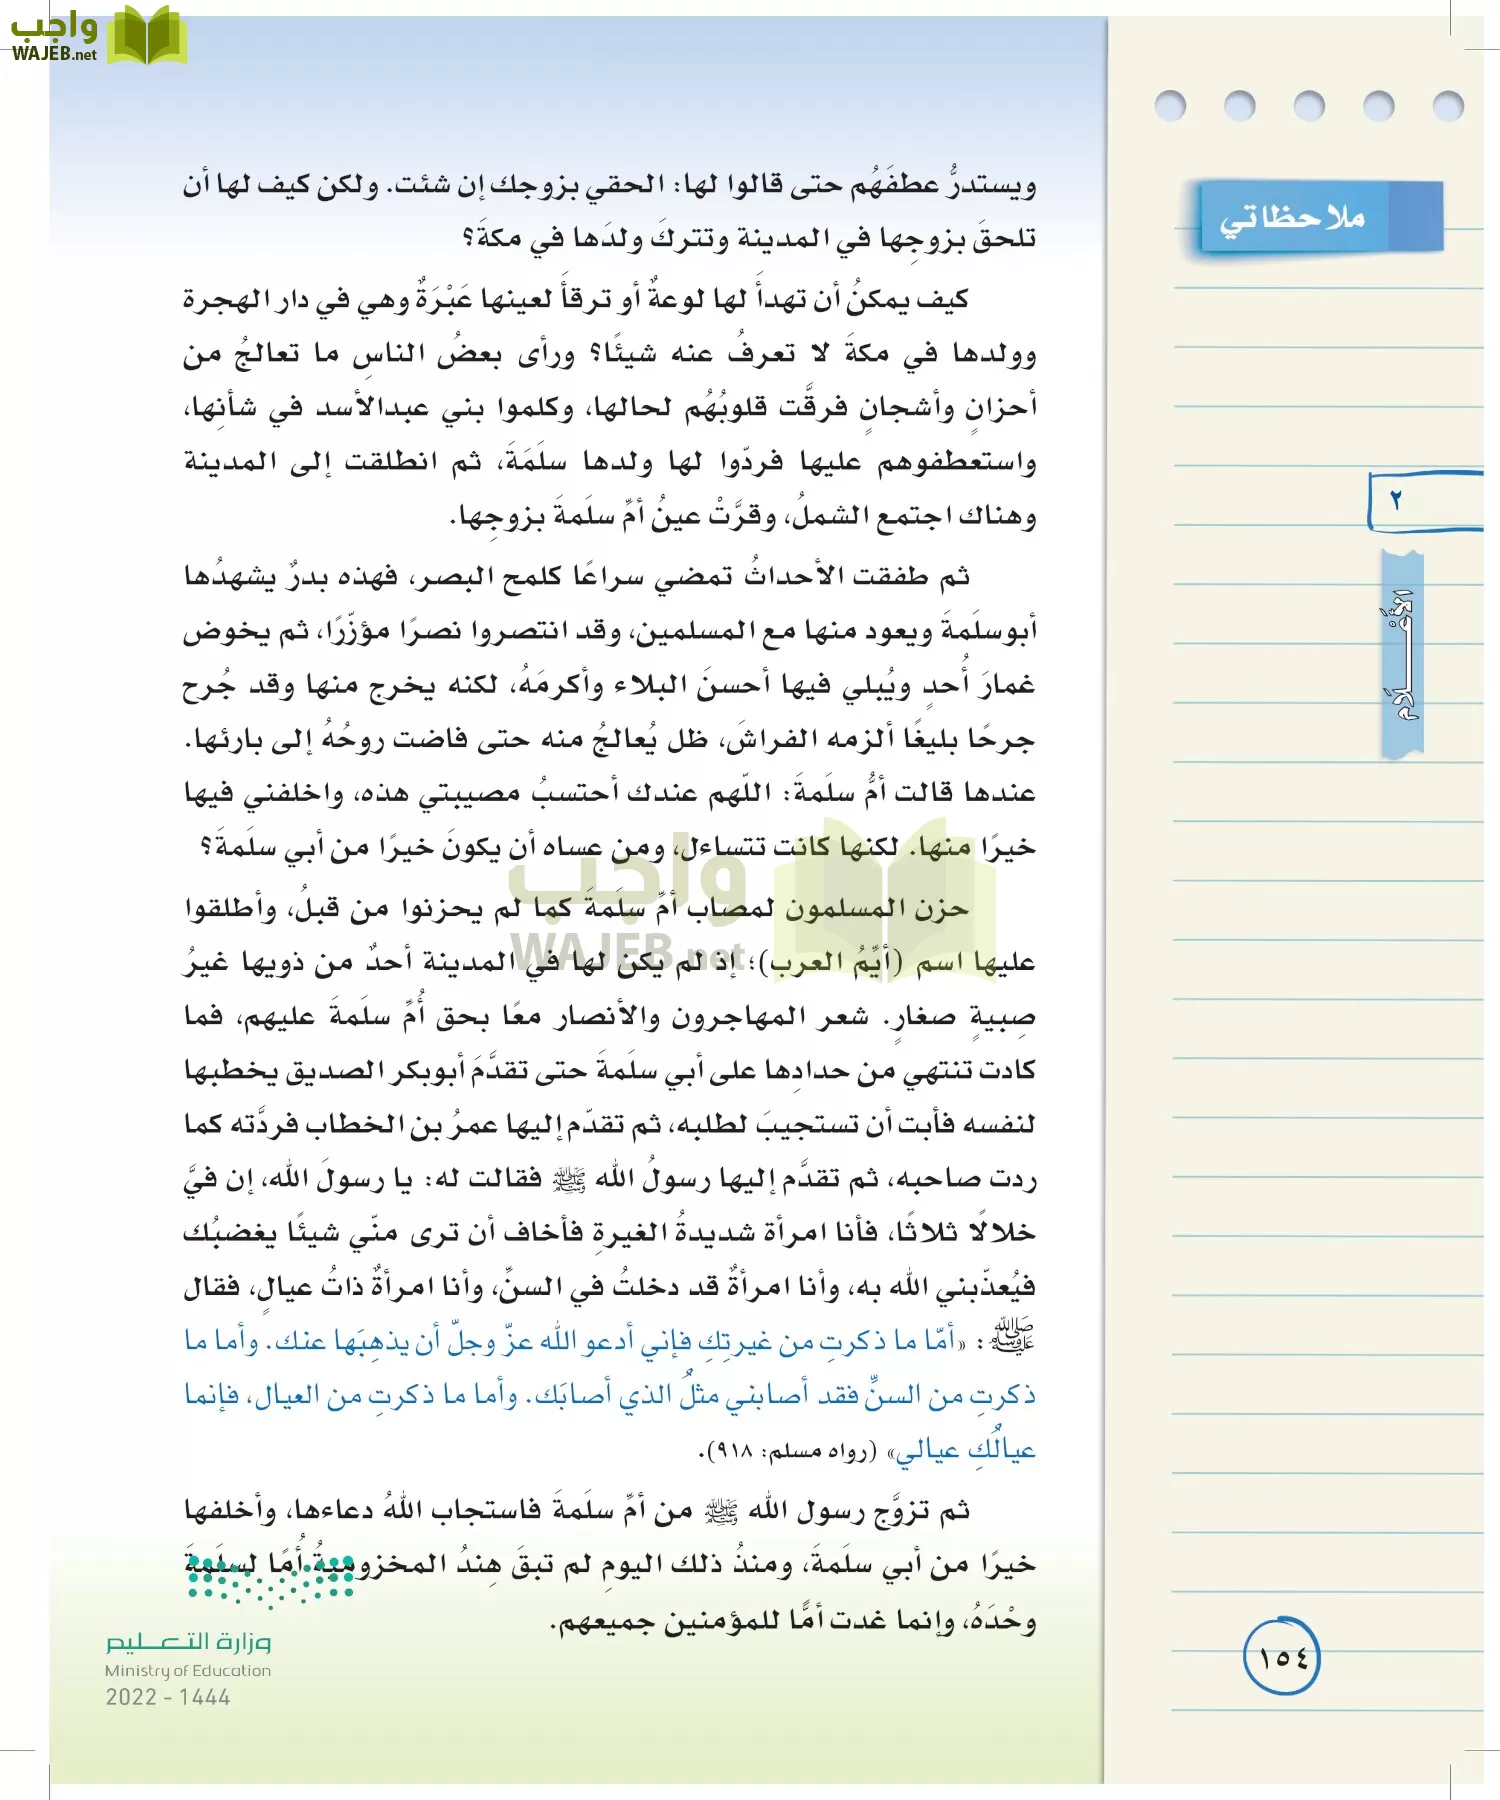 واجب
WAJEB.net
ملاحظاتي
٢
الأعـــلام
ويستدرُّ عطفَهُم حتى قالوا لها: الحقي بزوجك إن شئت. ولكن كيف لها أن
تلحقَ بزوجِها في المدينة وتتركَ ولدَها في مكةَ؟
كيف يمكنُ أن تهدأَ لها لوعةٌ أو ترقأَ لعينها عَبْرَةٌ وهي في دار الهجرة
وولدها في مكةَ لا تعرفُ عنه شيئًا؟ ورأى بعضُ الناسِ ما تعالجُ من
أحزانٍ وأشجانٍ فرقَّت قلوبُهُم لحالها، وكلموا بني عبدالأسد في شأنِها،
واستعطفوهم عليها فردّوا لها ولدها سلَمَةَ، ثم انطلقت إلى المدينة
وهناك اجتمع الشملُ، وقرَّتْ عينُ أمِّ سلَمةَ بزوجِها.
ثم طفقت الأحداثُ تمضي سراعًا كلمح البصر، فهذه بدرٌ يشهدُها
أبوسلَمةَ ويعود منها مع المسلمين، وقد انتصروا نصرًا مؤزّرًا، ثم يخوض
غمارَ أُحدٍ ويُبلي فيها أحسنَ البلاء وأكرمَهُ، لكنه يخرج منها وقد جُرح
جرحًا بليغًا ألزمه الفراشَ، ظل يُعالجُ منه حتى فاضت روحُهُ إلى بارئها.
عندها قالت أمُّ سلَمةَ: اللّهم عندك أحتسبُ مصيبتي هذه، واخلفني فيها
خيرًا منها. لكنها كانت تتساءل، ومن عساه أن يكونَ خيرًا من أبي سلَمةَ؟
حزن المسلمون لمصاب أمِّ سلَمةَ كما لم يحزنوا من قبلُ، وأطلقوا
عليها اسم (أيِّمُ العرب)؛ إذ لم يكن لها في المدينة أحدٌ من ذويها غيرُ
صِبيةٍ صغارٍ. شعر المهاجرون والأنصار معًا بحق أُمِّ سلَمةَ عليهم، فما
كادت تنتهي من حدادِها على أبي سلَمةَ حتى تقدَّمَ أبوبكر الصديق يخطبها
لنفسه فأبت أن تستجيبَ لطلبه، ثم تقدّم إليها عمرُ بن الخطاب فردَّته كما
ردت صاحبه، ثم تقدَّم إليها رسولُ الله ﷺ فقالت له: يا رسولَ الله، إن فيَّ
خلالًا ثلاثًا، فأنا امرأة شديدةُ الغيرةِ فأخاف أن ترى منّي شيئًا يغضبُك
فيُعذّبني الله به، وأنا امرأةٌ قد دخلتُ في السنِّ، وأنا امرأةٌ ذاتُ عيالٍ، فقال
ﷺ: «أمّا ما ذكرتِ من غيرتِكِ فإني أدعو الله عزّ وجلّ أن يذهِبَها عنك. وأما ما
ذكرتِ من السنِّ فقد أصابني مثلُ الذي أصابَك. وأما ما ذكرتِ من العيال، فإنما
عيالُكِ عيالي» (رواه مسلم: ٩١٨).
ثم تزوَّج رسول الله ﷺ من أمِّ سلَمةَ فاستجاب اللهُ دعاءها، وأخلفها
خيرًا من أبي سلَمةَ، ومنذُ ذلك اليومِ لم تبقَ هِندُ المخزوميةُ أُمًا لسلَمةَ
وحْدَهُ، وإنما غدت أمًّا للمؤمنين جميعهم.
واجب
WAJEB.net
وزارة التعـــليم
Ministry of Education
2022 - 1444
١٥٤